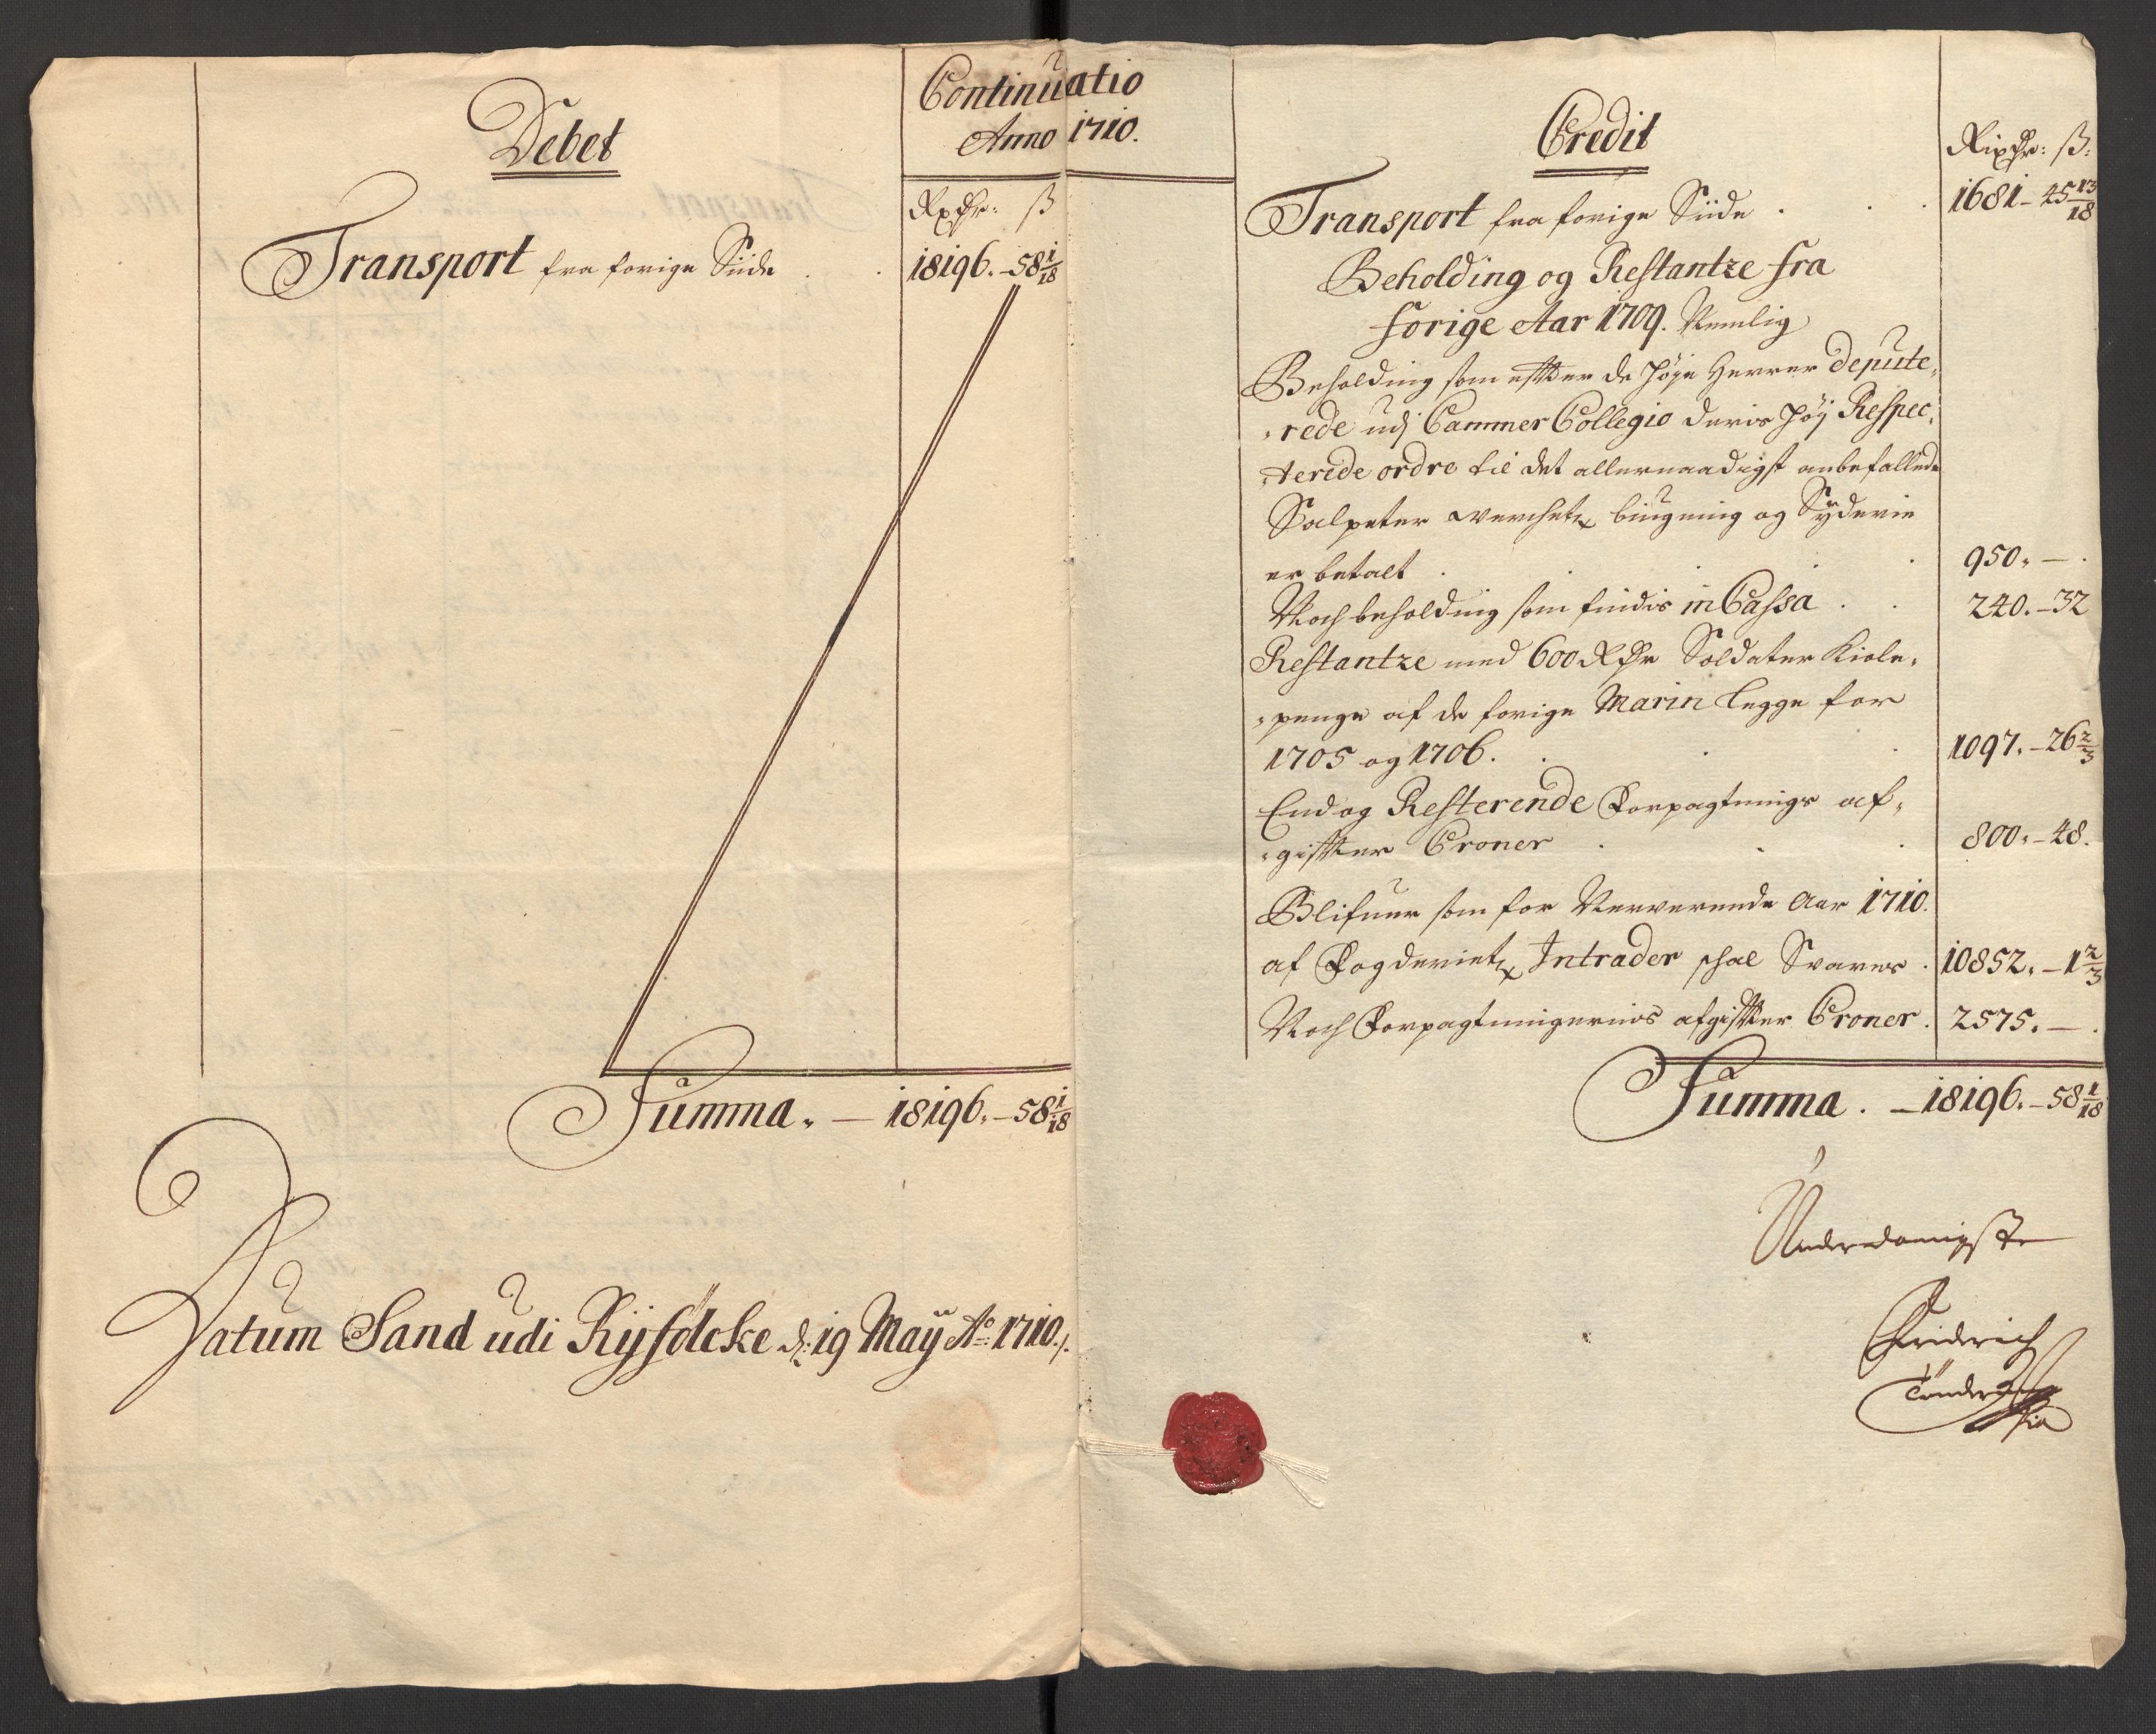 Continuatio
Anno 1710.
Debet
Rxdr: ß
Transport fra forige Siide . . 18196. - 58 1/18
Summa. — 18196. - 58 1/18
Datum Sand udi Ryfölcke d: 19 Maÿ Ao: 1710./.
Credit
Rixdr: ß:
Transport fra forige Siide . . . 1681 - 45 13/18
Beholding og Restantze fra
forige Aar 1709. Nemlig
Beholding som efter de høje Herrer Depute-
-rede udj Cammer Collegio deris høj Respec-
-terede ordre til det allernaadigst anbefallede
Salpeter werchetz biugning og Syderie
er betalt . . . . 950. — .
Noch beholding som findis in Cassa . . 240. - 32
Restantze med 600 Rdr Soldater Kiole-
-penge af de forige Marin legge for
1705 og 1706. . . . 1097. - 26 2/3
End og Resterende Forpagtnings af-
-gifter Croner . . . 800. - 48.
Blifuer som for Nerverende Aar 1710.
af Fogderietz Intrader schal Svares . 10852. - 1 2/3
Noch Forpagtningernis afgifter Croner . 2575. — .
Summa. — 18196. - 58 1/18
Underdanigste
Fridrich
Tönder